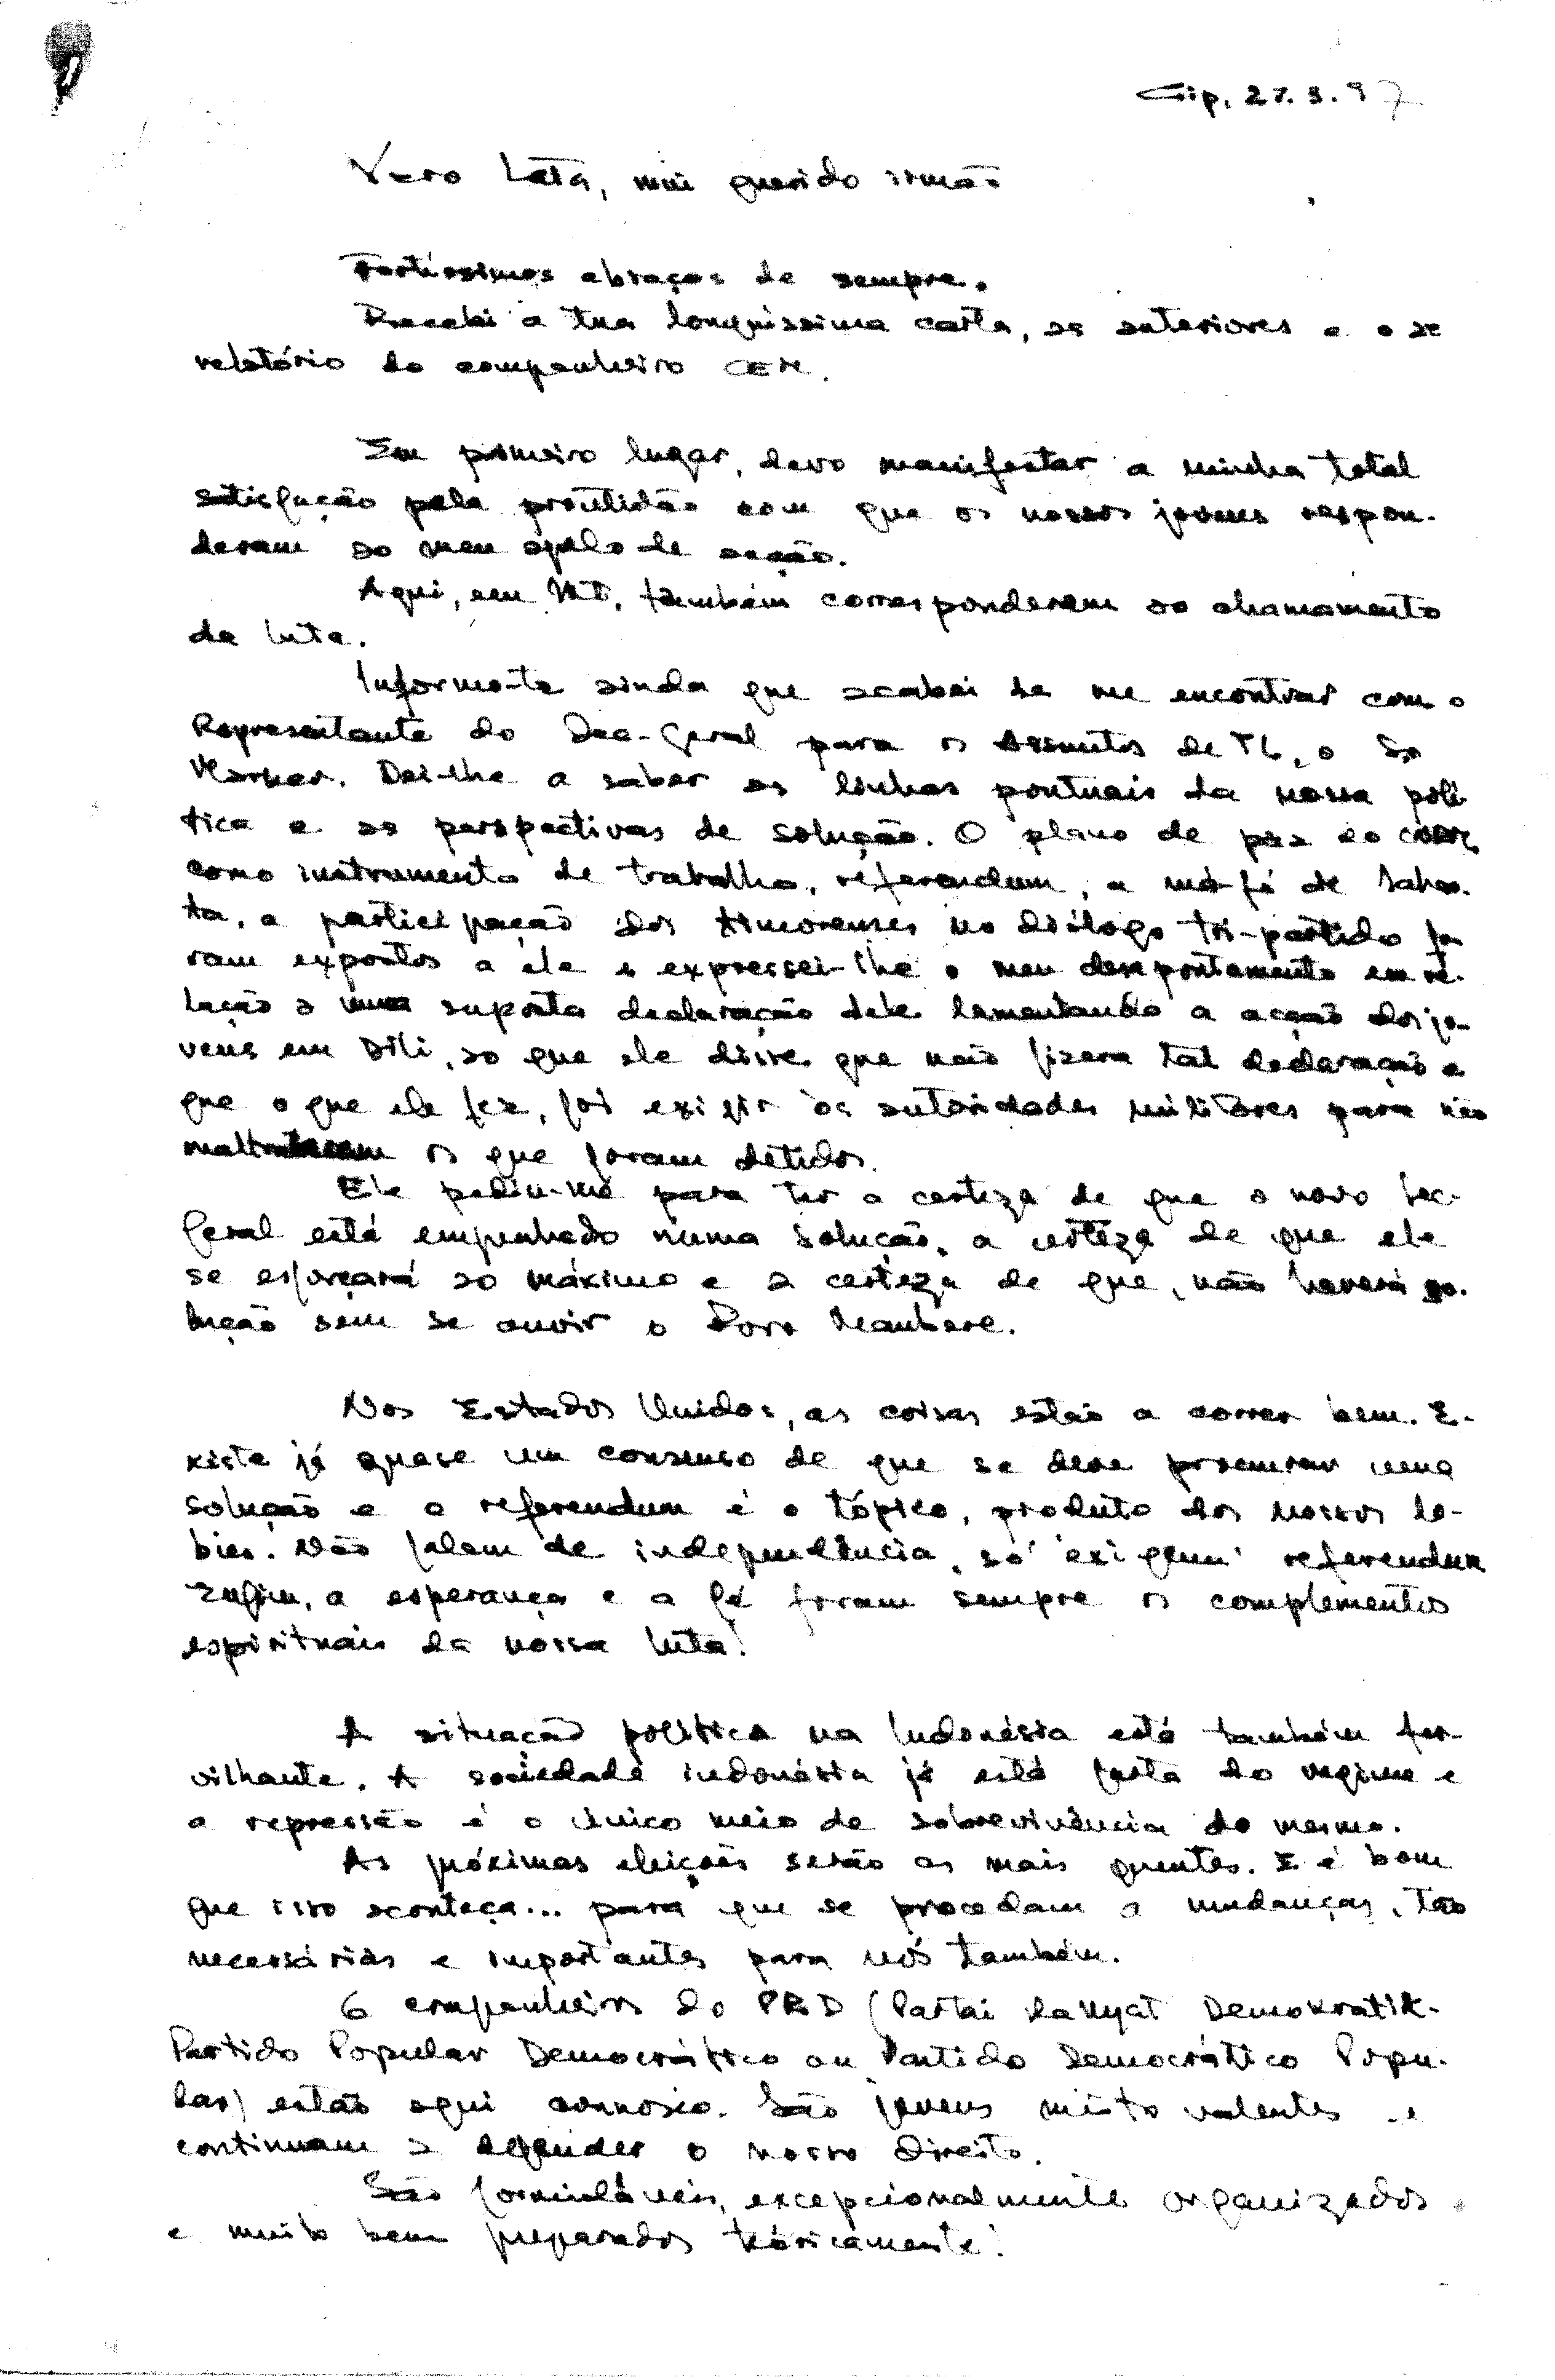 Cip, 27.3.97
Vero Lata, mui querido irmão
Fortíssimos abraços de sempre.
Recebi a tua longuíssima carta, as anteriores e o
relatório do companheiro CEM.
Em primeiro lugar, devo manifestar a minha total
satisfação pela prontidão com que os nossos jovens respon-
deram ao meu apelo de acção.
Aqui, em também corresponderam ao chamamento
da luta.
Informo-te ainda que acabei de me encontrar com o
Representante do Sec-Geral para os Assuntos de TL, o Sr
Marker. Dei-lhe a saber as linhas pontuais da nossa polí-
tica e as perspectivas de solução. O plano de paz do CNRM,
como instrumento de trabalho, referendum, a má-fé de Jakar-
ta, a participação dos timorenses no diálogo tri-partido fo-
ram expostos a ele e expressei-lhe o meu desapontamento em re-
lação a uma suposta declaração dele lamentando a acção dos jo-
vens em Dili, ao que ele disse que não fizera tal declaração e
que o que ele fez, foi exigir às autoridades militares para não
maltratarem os que foram detidos.
Ele pediu-me para ter a certeza de que o novo Sec-
Geral está empenhado numa solução, a certeza de que ele
se esforçará ao máximo e a certeza de que, não haverá so-
lução sem se ouvir o Povo Maubere.
Nos Estados Unidos, as coisas estão a correr bem. E-
xiste já quase um consenso de que se deve procurar uma
solução e o referendum é o tópico, produto dos nossos lo-
bies. Não falam de independência, só 'exigem' referendum
Enfim, a esperança e a fé foram sempre os complementos
espirituais da nossa luta!
A situação política na Indonésia está também fer-
vilhante. A sociedade indonésia já está farta do regime e
a repressão é o único meio de sobrevivência do mesmo.
As próximas eleições serão as mais quentes. E é bom
que isso aconteça... para que se procedam a mudanças, tão
necessárias e importantes para nós também.
6 companheiros do PRD (Partai Rakyat Demokratik-
Partido Popular Democrático ou Partido Democrático Popu-
lar) estão aqui connosco. São jovens muito valentes e
continuam a defender o nosso direito.
São formidáveis, excepcionalmente organizados
e muito bem preparados teóricamente!